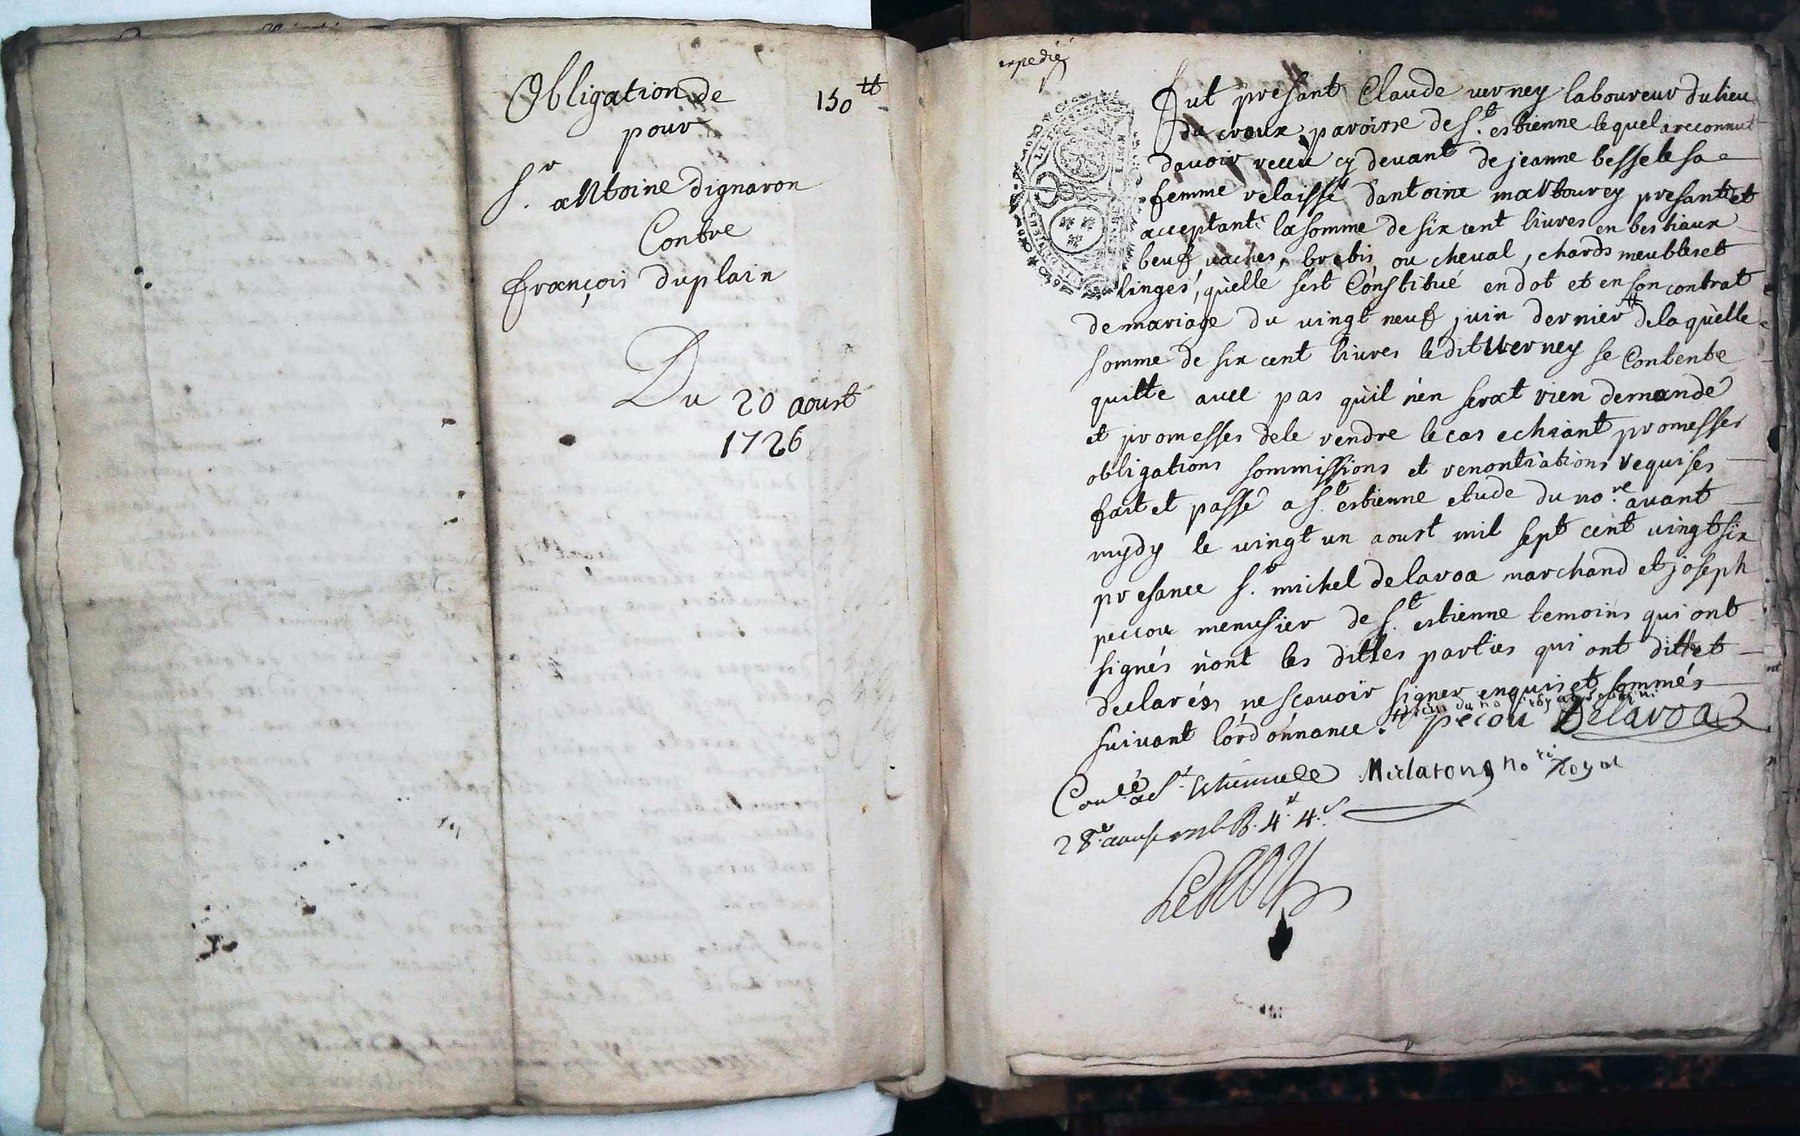 Obligation de 150tt
pour
Sr. antoine dignaron
Contre
françois duplain
Du 20 aoust
1726
expedié
fut presant Claude verney laboureur du lieu
du croux paroisse de St. estienne lequel a reconnut
davoir receu cy devant de jeanne bessete sa
femme relaissé dantoine marbourey presante et
acceptante la somme de six cent livres en bestiaux
beuf, vaches, brebis ou cheval, chards meubles et
linges, qu'elle sest Constitué en dot et en son contrat
de mariage du vingt neuf juin dernier de laquelle
somme de six cent livres le dit verney se Contente
quitte avec pas qu'il n'en serat rien demandé
et promesses de le rendre le cas echeant promesses
obligations sommissions et renontiations requises
fait et passé a St. estienne etude du nore. avant
mydy le vingt un aoust mil sept cent vingt six
presance Sr. michel delavoa marchand et joseph
peccou menusier de St. estienne temoins qui ont
signés n'ont les dittes parties qui ont dit et
declarées ne scavoir signer enquis et sommés
suivant l'ordonnance. pecou Delavoa
Conllé a St. Estienne le no re Royal
28e. aoust 4tt 4s.